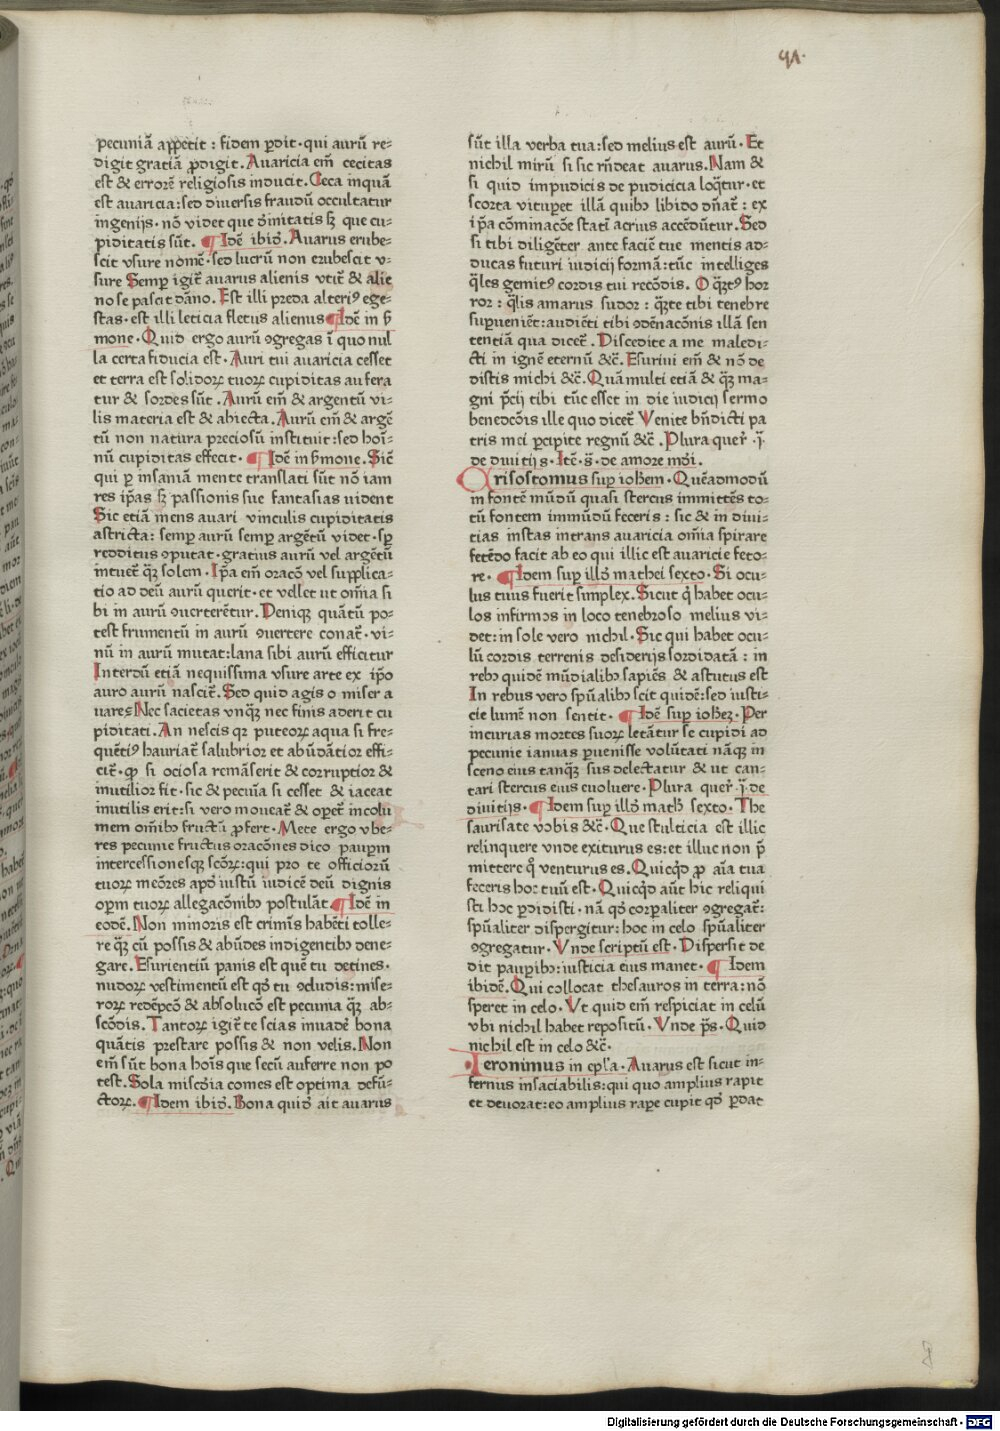 91.
pecuniā appetit : fidem ꝑdit · qui aurū re⸗
digit gratiā ꝓdigit. Auaricia em̄ cecitas
est & errorē religiosis inducit. Ceca inquā
est auaricia: sed diuersis fraudū occultatur
ingenijs · nō videt que diuinitatis sꝫ que cu⸗
piditatis sūt. ¶ Idē ibid̄. Auarus erube⸗
scit vsure nomē · sed lucrū non erubescit v⸗
sure Semꝑ igit̄ auarus alienis vtit̄ & alie
no se pascit dāno. Est illi preda alteriꝰ ege⸗
stas · est illi leticia fletus alienus ¶ Idē in ẜ
mone · Quid ergo aurū ꝯgregas ī quo nul
la certa fiducia est · Auri tui auaricia cesset
et terra est solidoꝝ tuoꝝ cupiditas aufera
tur & sordes sūt . Aurū em̄ & argentū vi⸗
lis materia est & abiecta. Aurū em̄ & argē
tū non natura preciosū instituit: sed hoī⸗
nū cupiditas effecit · ¶ Idē in ẜmone. Sic̄
qui ꝑ insaniā mente translati sūt nō iam
res ip̄as sꝫ passionis sue fantasias uident
Sic etiā mens auari vinculis cupiditatis
astricta: semꝑ aurū semꝑ argētū videt · sꝑ
redditus ꝯputat · gratius aurū vel argētū
intuet̄ qꝫ solem · Ip̄a em̄ oracō vel supplica⸗
tio ad deū aurū querit · et vellet ut om̄ia si
bi in aurū ꝯuerterētur. Deniqꝫ quātū po⸗
test frumentū in aurū ꝯuertere conat̄ · vi⸗
nū in aurū mutat: lana sibi aurū efficitur
Interdū etiā nequissima vsure arte ex ip̄o
auro aurū nascit̄. Sed quid agis o miser a
uare? Nec sacietas vnqꝫ nec finis aderit cu
piditati. An nescis qꝛ puteoꝝ aqua si fre⸗
quētiꝰ hauriat̄ salubrior et abūdātior effi⸗
cit̄ · ꝙ si ociosa remāserit & corruptior &
inutilior fit · sic & pecuīa si cesset & iaceat
inutilis erit: si vero moueat̄ & oꝑet̄ incolu
mem om̄ibꝫ fructū ꝓfert · Mete ergo vbe⸗
res pecunie fructus oracōnes dico pauꝑm
intercessionesqꝫ scōꝝ: qui pro te officiorū
tuoꝝ meōres apd̄ iustū iudicē deū dignis
oꝑm tuoꝝ allegacōnibꝫ postulāt. ¶ Idē in
eodē. Non minoris est crimīs habēti tolle⸗
re qꝫ cū possis & abūdes indigentibꝫ dene⸗
gare. Esurientiū panis est quē tu detines ·
nudoꝝ vestimentū est qd̄ tu ꝯcludis: mise⸗
roꝝ redēpcō & absolucō est pecunia qꝫ ab⸗
scōdis. Tantoꝝ igit̄ te scias inuadē bona
quātis prestare possis & non velis. Non
em̄ sūt bona hoīs que secū auferre non po
test. Sola misc̄dia comes est optima defū⸗
ctoꝝ. ¶ Idem ibid̄. Bona quid̄ ait auarus
sūt illa verba tua: sed melius est aurū · Et
nichil mirū si sic rn̄deat auarus. Nam &
si quid impudicis de pudicicia loq̄tur · et
scorta vituꝑet illā quibꝫ libido dn̄at̄ : ex
ip̄a cōmmacōe statī acrius accēdūtur. Sed
si tibi diligēter ante faciē tue mentis ad⸗
ducas futuri iudicij formā: tūc intelliges
q̄les gemitꝰ cordis tui recōdis. O qꝫtꝰ hor
ror : q̄lis amarus sudor : qꝫte tibi tenebre
suꝑueniēt: audiēti tibi ꝯdēnacōnis illā sen
tentiā qua dicet̄. Discedite a me maledi⸗
cti in ignē eternū &c̄. Esuriui em̄ & nō de
distis michi &c̄. Quā multi etiā & qꝫ ma⸗
gni p̄cij tibi tūc esset in die iudicij sermo
benedcōis ille quo dicet̄ Venite bn̄dicti pa
tris mei ꝑcipite regnū &c̄. Plura quer̄ · j̄.
de diuitijs · Itē · s̄ · de amore mūdi.
Crisostomus suꝑ ioh̄em · Quēadmodū
in fontē mūdū quasi stercus immittēs to⸗
tū fontem immūdū feceris : sic & in diui⸗
tias instas intrans auaricia om̄ia spirare
fetēdo facit ab eo qui illic est auaricie feto⸗
re. ¶ Idem suꝑ illd̄ mathei sexto · Si ocu⸗
lus tuus fuerit simplex. Sicut q̇ habet ocu⸗
los infirmos in loco tenebroso melius vi⸗
det: in sole vero nichil · Sic qui habet ocu⸗
lū cordis terrenis desiderijs sordidatā : in
rebꝫ quidē mūdialibꝫ sapiēs & astutus est
In rebus vero sp̄ualibꝫ scit quidē: sed iusti⸗
cie lumē non sentit · ¶ Idē suꝑ ioh̄eꝫ · Per
incurias mortes suoꝝ letātur se cupidi ad
pecunie ianuas ꝑuenisse volūtati nāqꝫ in
sceno eius tanqꝫ sus delectatur & ut can⸗
tari stercus eius euoluere · Plura quer̄ · j̄. de
diuitijs · ¶ Idem suꝑ illd̄ math̄ sexto · The
saurisate vobis &c̄. Que stulticia est illic
relinquere vnde exiturus es: et illuc non p̄
mittere qͦ venturus es. Quicqd̄ ꝓ aīa tua
feceris hoc tuū est · Quicqd̄ aūt hic reliqui
sti hoc ꝑdidisti · nā qd̄ corꝑaliter ꝯgregat̄:
sp̄ualiter dispergitur: hoc in celo sp̄ualiter
ꝯgregatur · Vnde scriptū est · Dispersit de
dit pauꝑibꝫ: iusticia eius manet · ¶ Idem
ibidē. Qui collocat thesauros in terra: nō
speret in celo · Vt quid em̄ respiciat in celū
vbi nichil habet repositū · Vnde p̄s. Quid
nichil est in celo &c̄.
Ieronimus in epl̄a · Auarus est sicut in⸗
fernus insaciabilis: qui quo amplius rapit
et deuorat: eo amplius raꝑe cupit qd̄ ꝑdat
Digitalisierung gefördert durch die Deutsche Forschungsgemeinschaft - DFG